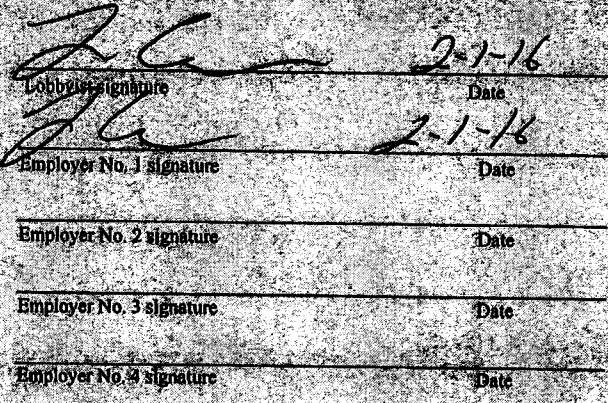 2-1-16
Lobbyist signature Date
2-1-16
Employer No. 1 signature Date
Employer No. 2 signature Date
Employer No. 3 signature Date
Employer No. 4 signature Date